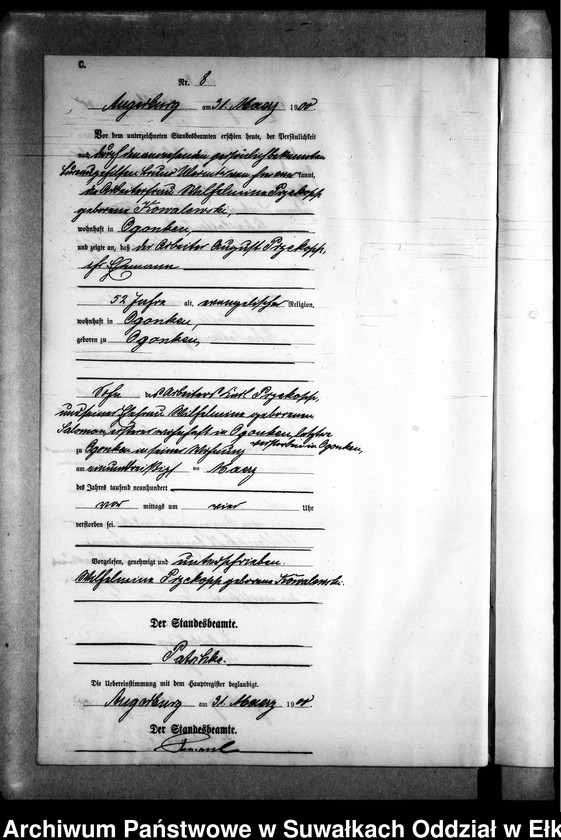 C.
Nr. 8
Angerburg am 31. Maerz 1900
Vor dem unterzeichneten Standesbeamten erschien heute, der Persönlichkeit
nach durch den anwesenden persönlich bekannten
Büreaugehilfen kannt,
die Arbeiterfrau Wilhelmine Pyckopp
geborene Kowalewski,
wohnhaft in Ogonken,
und zeigte an, daß der Arbeiter August Pyckopp,
ihr Ehemann
52 Jahre alt, evangelischer Religion,
wohnhaft in Ogonken,
geboren zu Ogonken,
Sohn des Arbeiters Karl Pyckopp
und seiner Ehefrau Wilhelmine geborenen
Salomon, ersterer wohnhaft in Ogonken, letztere
verstorben in Ogonken,
zu Ogonken in seiner Wohnung
am einunddreißigsten Maerz
des Jahres tausend neunhundert
vor mittags um vier Uhr
verstorben sei.
Vorgelesen, genehmigt und unterschrieben.
Wilhelmine Pyckopp geborene Kowalewski.
Der Standesbeamte.
Die Uebereinstimmung mit dem Hauptregister beglaubigt.
Angerburg am 31. Maerz 1900
Der Standesbeamte.
Archiwum Państwowe w Suwałkach Oddział w Ełk